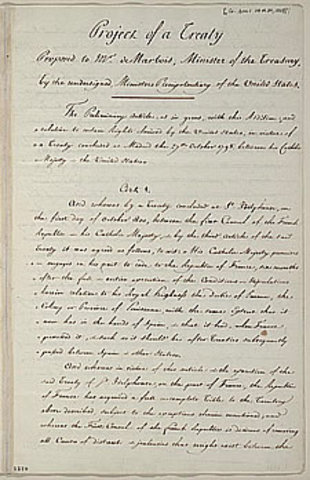 Project of a Treaty
Proposed to Mr. de Marbois, Minister of the Treasury
by the undersigned, Ministers Plenipotentiary of the United States.
The Preliminary Articles, as is given, with the Addition, and
a relation to certain Rights claimed by the United States, in virtue of
a Treaty concluded at Madrid the 27th October 1795, between his Catholic
Majesty & the United States
Art. 1.
And whereas by a Treaty concluded at St. Idelphonso, on
the first day of October 1800, between the first Consul of the French
Republic & his Catholic Majesty, & by the third article of the said
Treaty it was agreed as follows, to wit, His Catholic Majesty promises
& engages on his part to cede to the Republic of France, six months
after the full & entire execution of the Conditions & Stipulations
herein relative to his Royal Highness the Duke of Parma, the
Colony or Province of Louisiana with the same Extent that it
now has in the hands of Spain, & that it had, when France
possessed it, & such as it should be after Treaties subsequently
passed between Spain & other States.
And whereas in virtue of this article & the operation of the
said Treaty of St. Idelphonso, on the part of France, the Republic
of France has acquired a full & complete Title to the Territory
above described subject to the exceptions therein mentioned, and
whereas the First Consul of the French Republic is desirous of removing
all Causes of distrust & jealousies that might exist between the